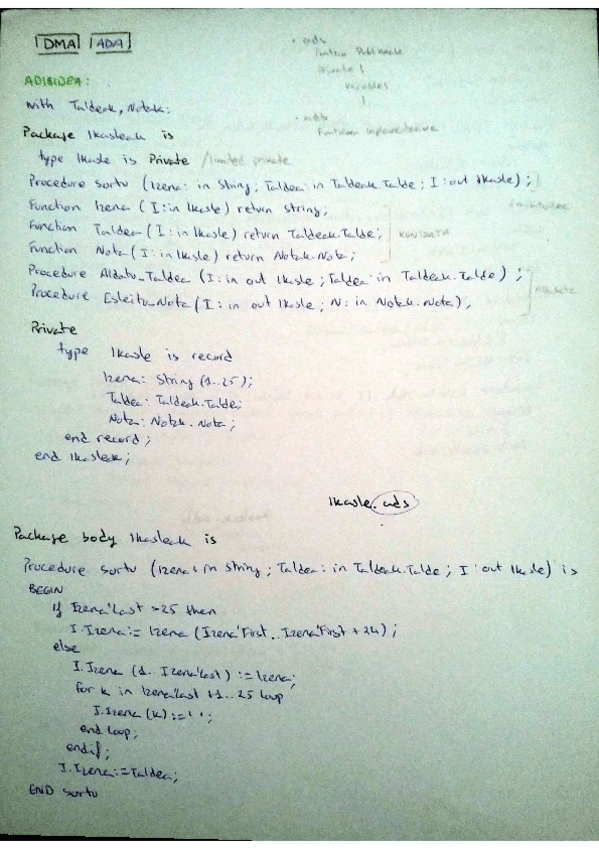 DMA ADA
· ads
Funtzio Publikoak
Private {
variables
}
· adb
Funtzioen Inplementazioa
ADIBIDEA:
with Taldeak, Notak;
Package Ikasleak is
type Ikasle is Private /limited private
Procedure Sortu (Izena: in String; Taldea: in Taldeak.Talde; I: out Ikasle);
Function Izena (I: in Ikasle) return String;
Function Taldea (I: in Ikasle) return Taldeak.Talde; KONTSULTA
Function Nota (I: in Ikasle) return Notak.Nota;
Procedure Aldatu_Taldea (I: in out Ikasle; Taldea in Taldeak.Talde);
Procedure Esleitu_Nota (I: in out Ikasle; N: in Notak.Nota);
Private
type Ikasle is record
Izena: String (1..25);
Taldea: Taldeak.Talde;
Nota: Notak.Nota;
end record;
end Ikasleak;
Ikasle.ads
Package body Ikasleak is
Procedure Sortu (Izena: in String; Taldea: in Taldeak.Talde; I: out Ikasle) is
BEGIN
if Izena'Last >25 then
I.Izena:= Izena (Izena'First..Izena'First + 24);
else
I.Izena (1..Izena'Last) := Izena;
for k in Izena'Last +1..25 loop
I.Izena (k):=' ';
end loop;
endif;
I.Izena:=Taldea;
END Sortu